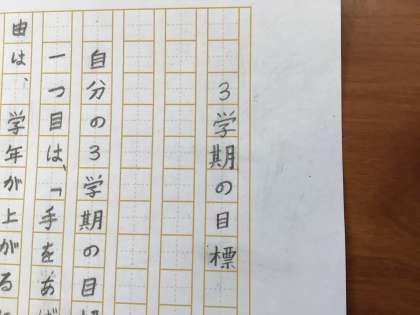 3学期の目標
自分の3学期の目
一つ目は、「手をあ
由は、学年が上がる